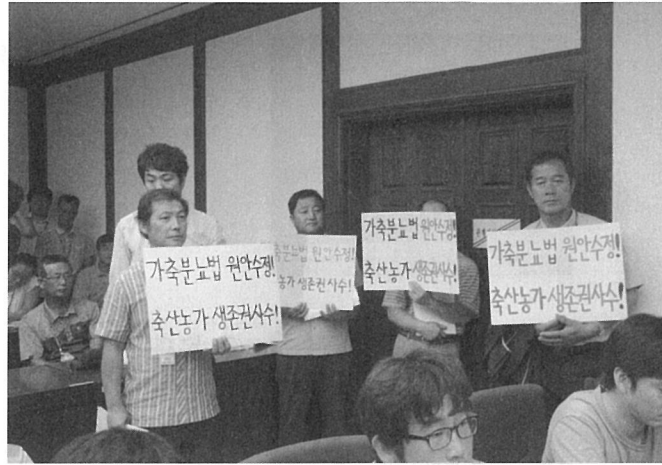 가축분뇨법 원안수정!
축산농가 생존권사수!
축분뇨법 원안수정!
농가 생존권사수!
가축분뇨법 원안수정!
축산농가 생존권사수!
가축분뇨법 원안수정!
축산농가 생존권사수!